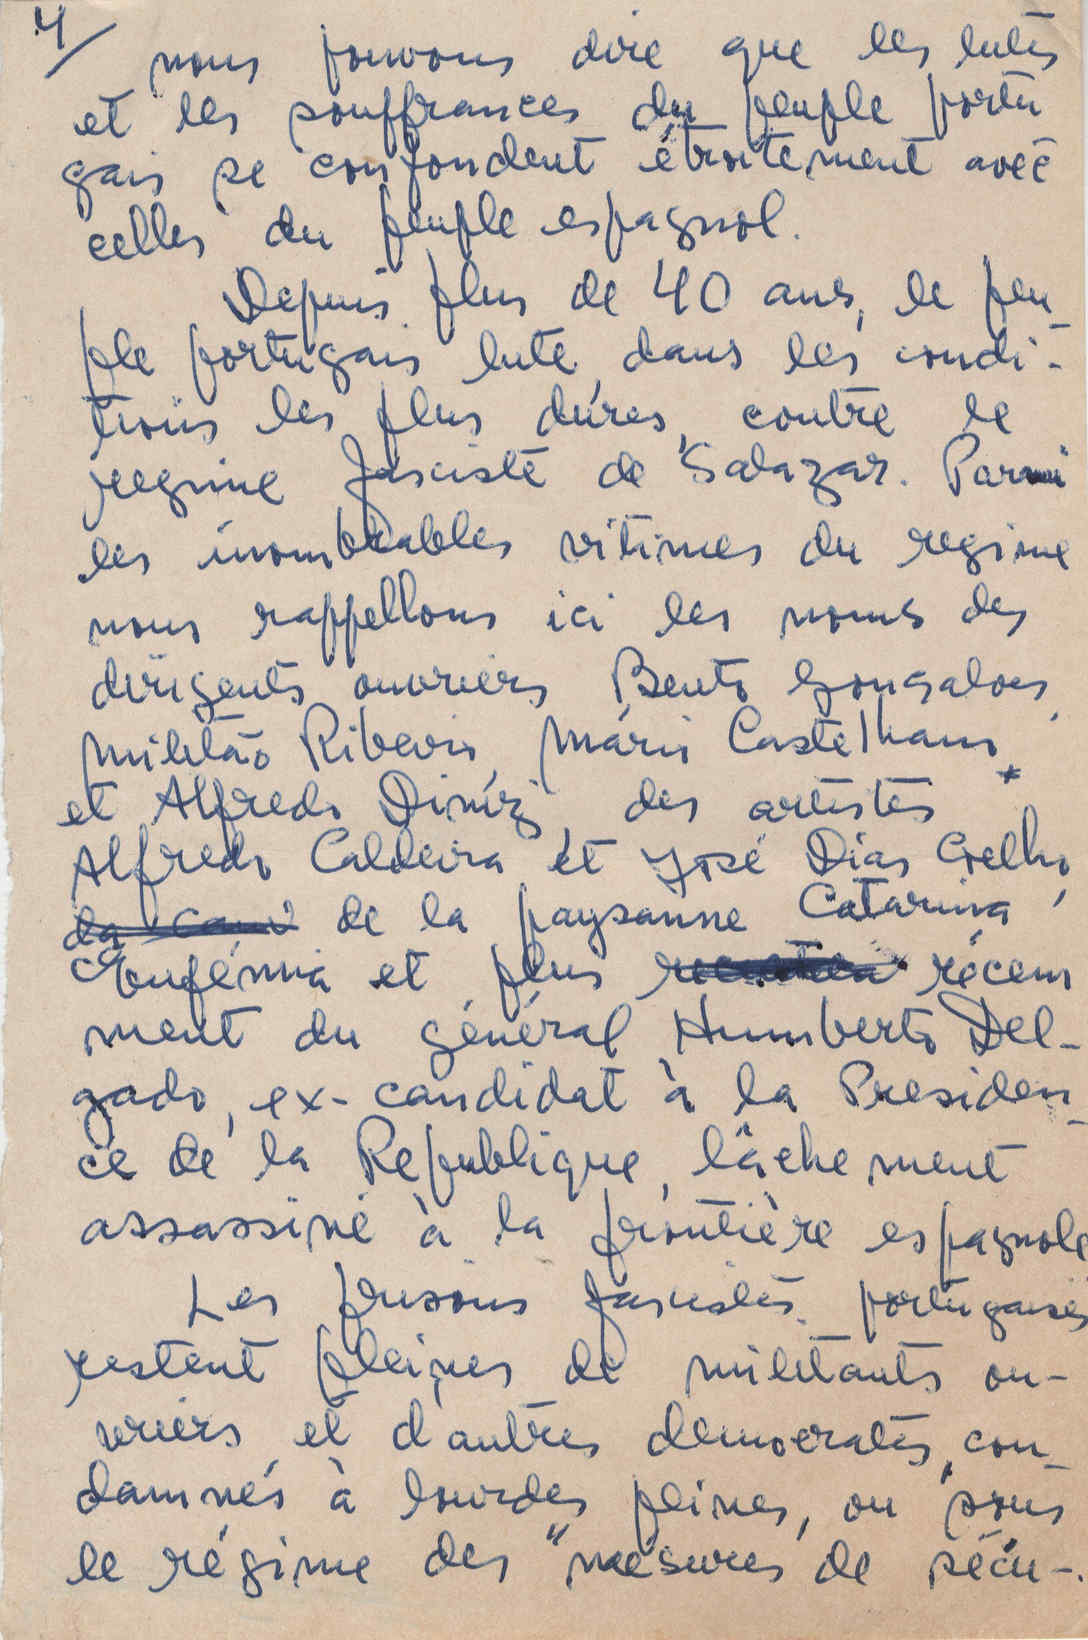 4/
nous pouvons dire que les lutes
et les souffrances du peuple portu
gais se confondent étroitement avec
celles du peuple espagnol.
Depuis plus de 40 ans, le peu_
ple portugais lute, dans les condi-
tions les plus dures, contre le
regime fasciste de Salazar. Parmi
les inombrables vitimes du regime
nous rappellons ici les noms des
dirigents ouvriers Bento Gonçalves,
Militão Ribeiro, Mário Castelhano,
et Alfredo Diniz, des artistes *
Alfredo Caldeira et José Dias Coelho,
de la paysanne Catarina
Eufémia et plus récem
ment du général Humberto Del-
gado, ex-candidat à la Presiden_
ce de la Republique, lâchement
assassiné à la frontière espagnole
Les prisons fascistes portugaises
restent pleines de militants ou-
vriers et d'autres democrates, con_
damnés à lourdes peines, ou sous
le régime des "mesures de sécu-.